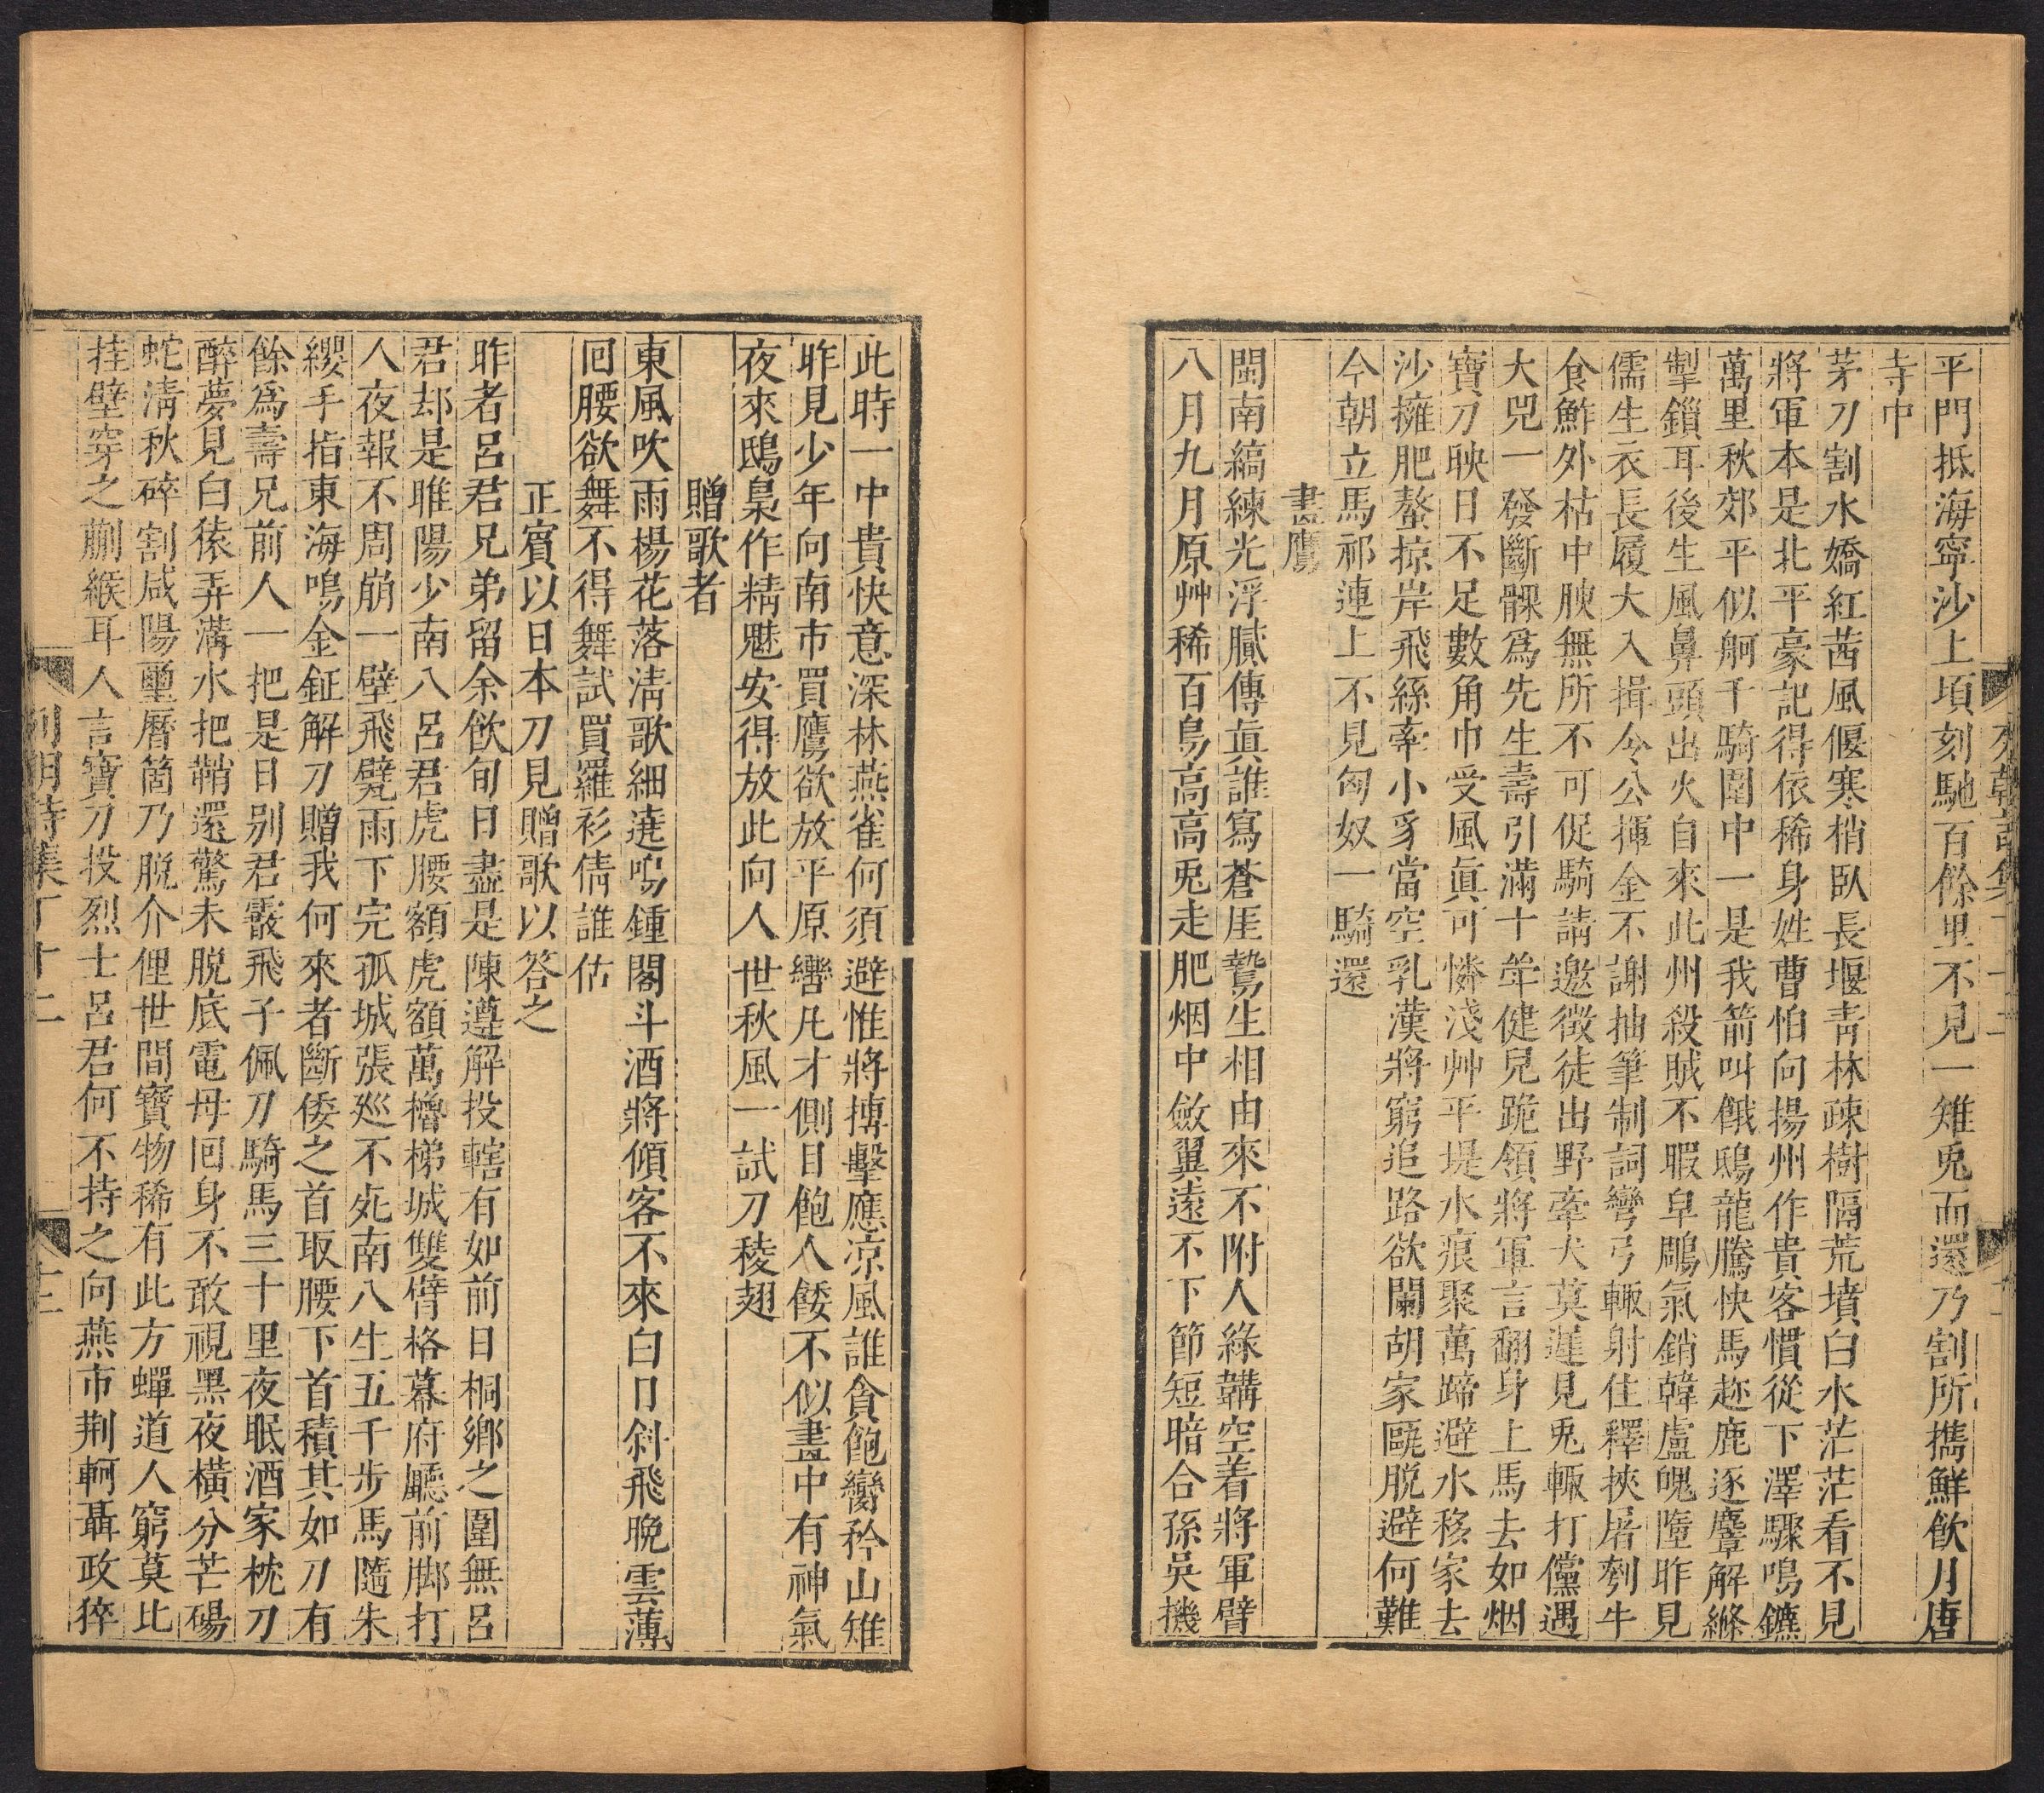 平門抵海寧沙上項刻馳百餘里不見一雉兎而還乃割所攜鮮飲月唐
寺中
茅刀割水嬌紅茜風偃寒梢臥長堰靑林疎樹隔荒墳白水茫茫看不見
將軍本是北平豪記得依稀身姓曹怕向揚州作貴客慣從下澤驟鳴鑣
萬里秋郊平似舸千騎圍中一是我箭叫餓鴟龍騰快馬趂鹿逐麞解縧
掣鎻耳後生風鼻頭出火自來此州殺賊不暇皁鵰氣銷韓盧魄墮昨見
儒生衣長履大入揖令公揮金不謝抽筆制詞彎弓輙射住釋挾屠刳牛
食鮓外枯中腴無所不可促騎請邀徵徒出野牽犬莫遲見兎輙打儻遇
大兕一發斷髁爲先生壽引滿十觥健兒跪領將軍言翻身上馬去如烟
寶刀映日不足數角巾受風眞可憐淺艸平堤水痕聚萬蹄避水移家去
沙擁肥螯掠岸飛絲牽小豸當空乳漢將窮追路欲闌胡家甌脱避何難
今朝立馬祁連上不見匈奴一騎還
畫鷹
閩南縞練光浮膩傳眞誰寫蒼厓鷙生相由來不附人綠鞲空着將軍臂
八月九月原艸稀百鳥高高兎走肥烟中斂翼遠不下節短暗合孫吳機
此時一中貴快意深林燕雀何須避惟將搏擊應凉風誰貪飽孌矜山雉
昨見少年向南市買鷹欲放平原轡凡才側目飽人餧不似畫中有神氣
夜來鴟梟作精魅安得放此向人世秋風一試刀稜翅
贈歌者
東風吹雨楊花落淸歌細遶鳴鍾閣斗酒將傾客不來白日斜飛晚雲薄
囘腰欲舞不得舞試買羅衫倩誰估
正賓以日本刀見贈歌以答之
昨者呂君兄弟留余飲旬日盡是陳遵解投轄有如前日桐鄉之圍無呂
君却是睢陽少南八呂君虎腰額虎額萬櫓梯城雙臂格幕府廳前脚打
人夜報不周崩一壁飛甓雨下完孤城張廵不死南八生五千步馬隨朱
纓手指東海鳴金鉦解刀贈我何來者斷倭之首取腰下首積其如刀有
餘爲壽兄前人一把是日别君霰飛子佩刀騎馬三十里夜眠酒家枕刀
醉夢見白猿弄溝水把鞘還驚未脱底電母囘身不敢視黑夜橫分芒碭
蛇淸秋碎割咸陽璽曆箇乃脱介俚世間寶物稀有此方蟬道人窮莫比
挂壁穿之蒯緱耳人言寶刀投烈士呂君何不持之向燕市荆軻聶政猝